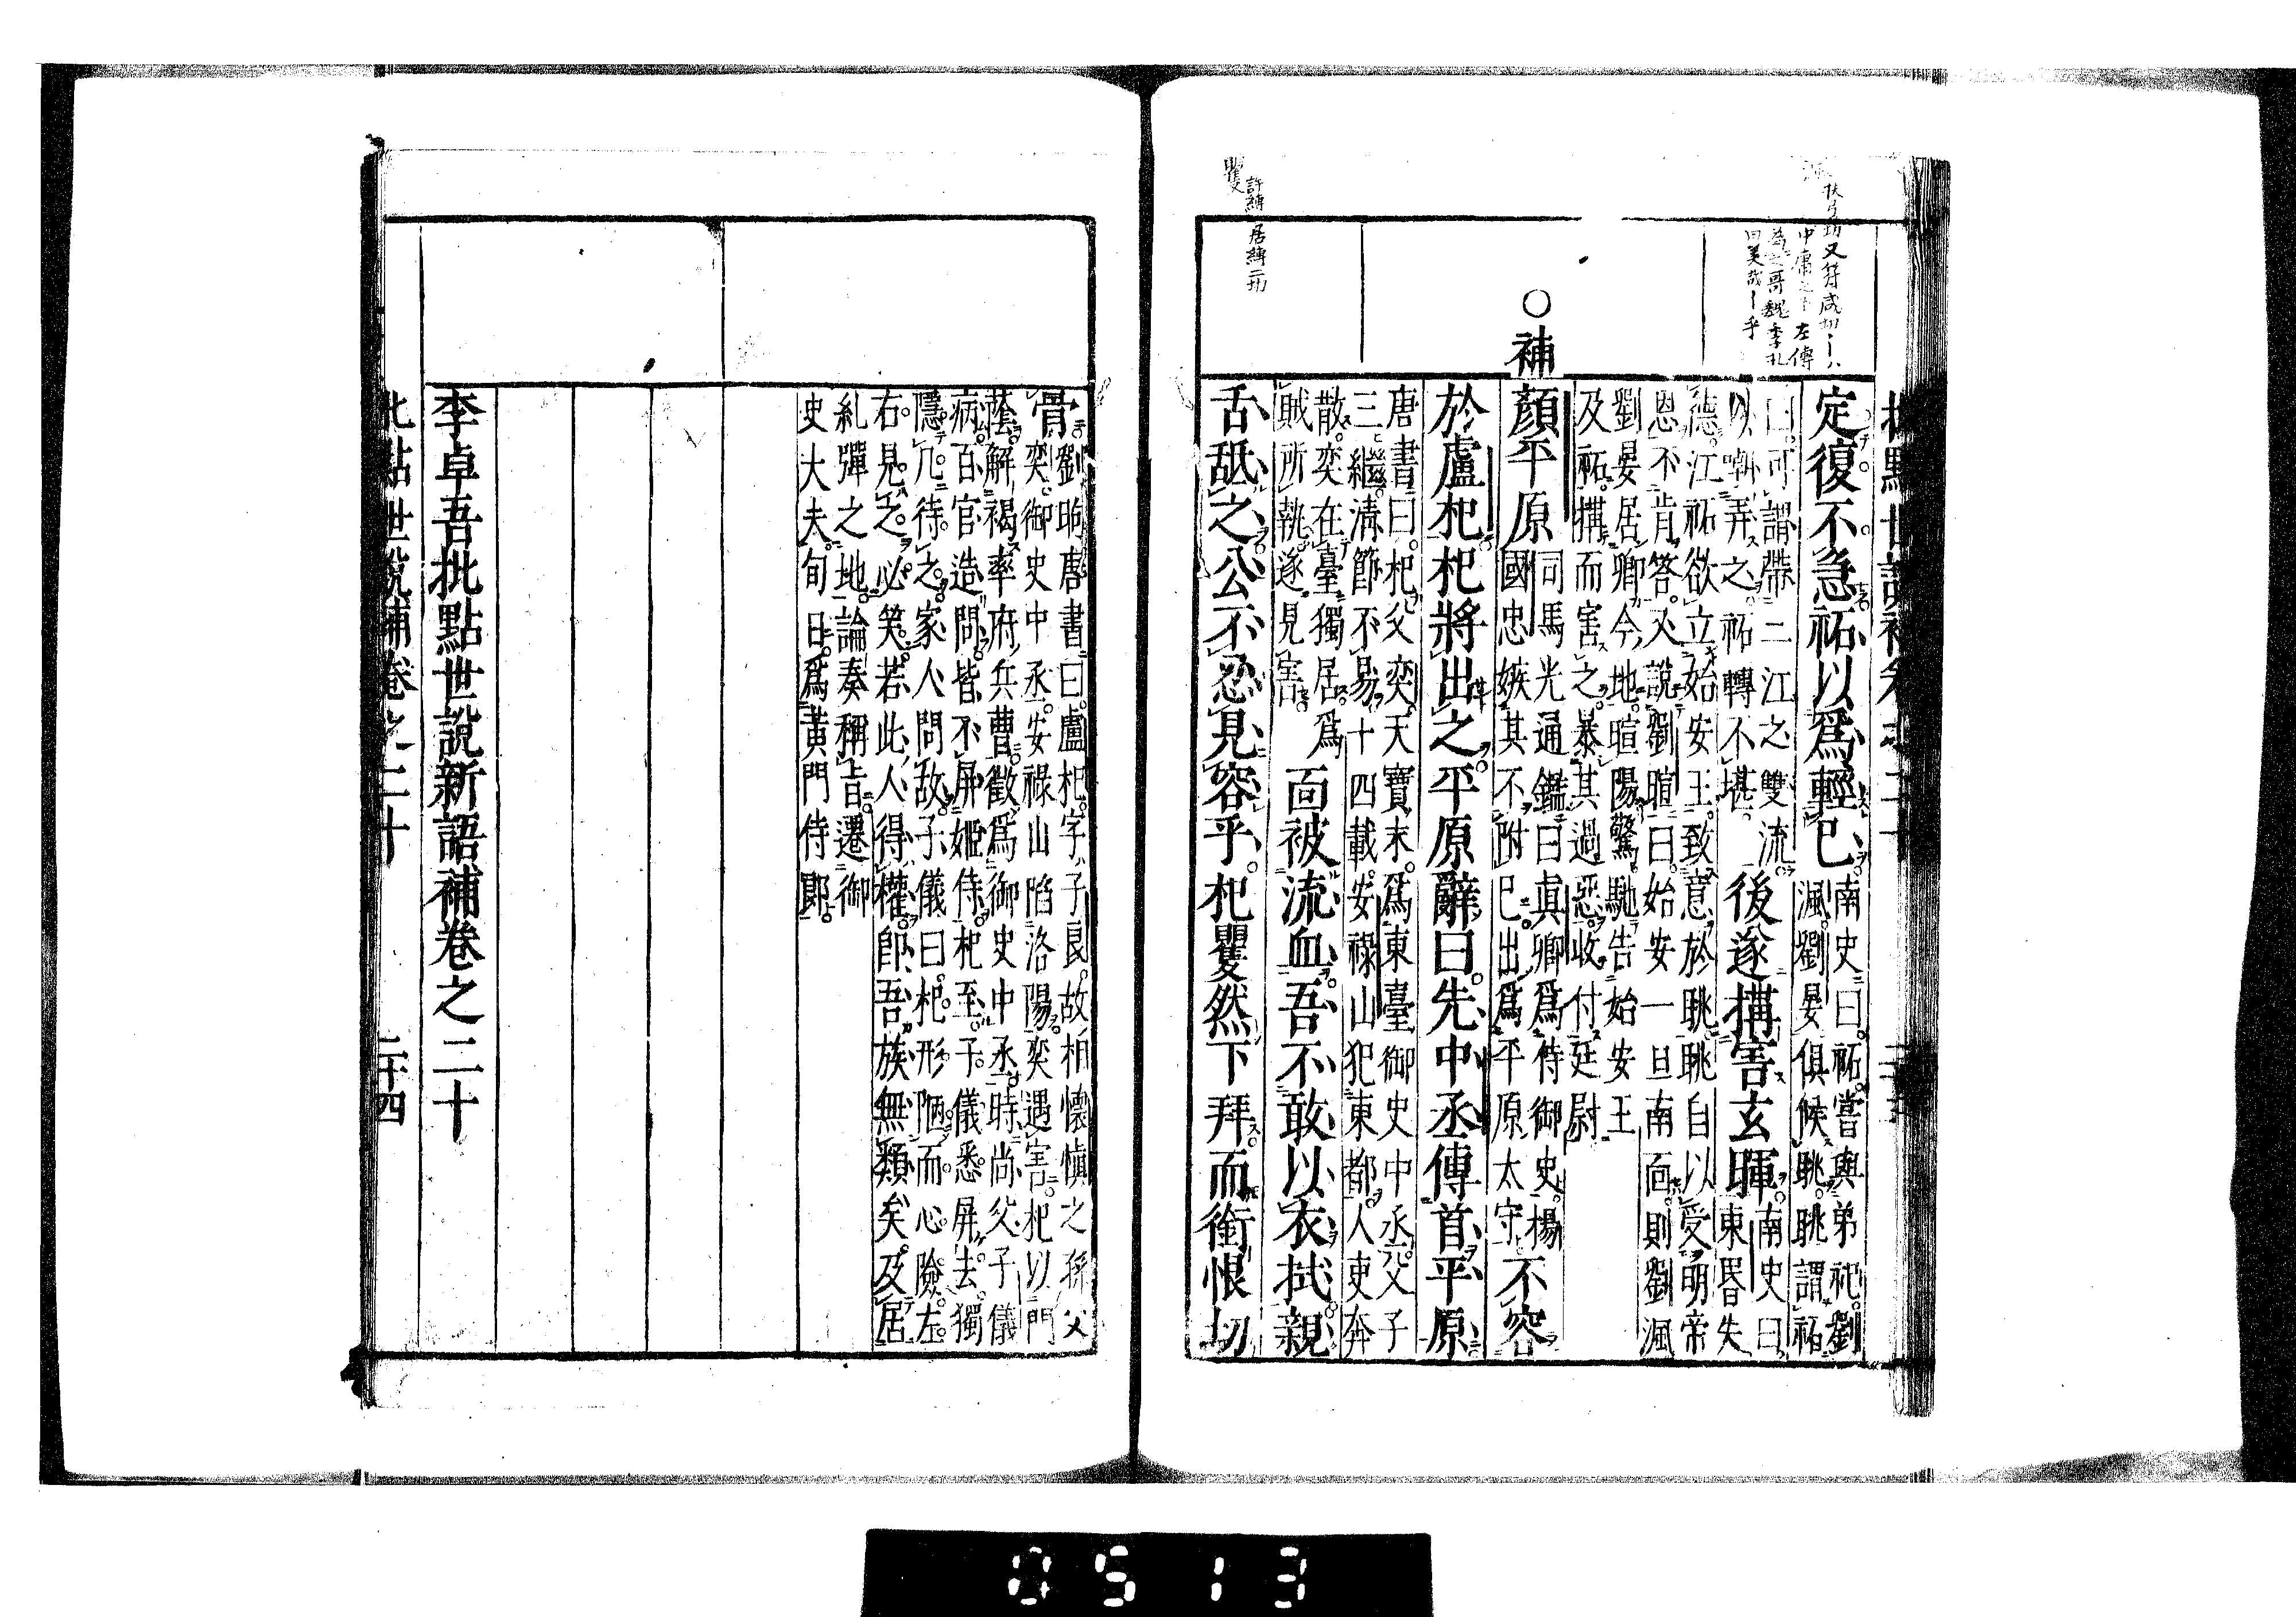 定復不急祏以爲輕已南史曰祏嘗與弟祀劉
渢劉晏俱候眺眺謂祏
曰可謂帶二江之雙流
以嘲弄之祏轉不堪後遂搆害玄暉南史曰
東昏失
德江祏欲立始安王致意於眺眺自以受明帝
恩不肯答又說劉暄曰始安一旦南面則劉渢
劉晏居卿今地暄陽驚馳告始安王
及祏搆而害之暴其過惡收付廷尉
○補
顏平原司馬光通鑑曰眞卿爲侍御史楊
國忠嫉其不附已出爲平原太守不容
於盧杞杞將出之平原辭曰先中丞傳首平原
唐書曰杞父奕天寶末爲東臺御史中丞父子
三繼清節不易十四載安祿山犯東都人吏奔
散奕在臺獨居爲
賊所執遂見害面被流血吾不敢以衣拭親
舌舐之公不忍見容乎杞矍然下拜而銜恨切
矍 許縛居縛二切
骨劉昫唐書曰盧杞字子良故相懷愼之孫父
奕御史中丞安祿山陷洛陽奕遇害杞以門
蔭解褐率府兵曹徵爲御史中丞時尚父子儀
病百官造問皆不屏姬侍杞至子儀悉屏去獨
隱几待之家人問故子儀曰杞形陋而心險左
右見之必笑若此人得權卽吾族無類矣及居
糺彈之地論奏稱旨遷御
史大夫旬日爲黃門侍郞
李卓吾批點世說新語補卷之二十
批點世說補卷之二十 二十四
0513